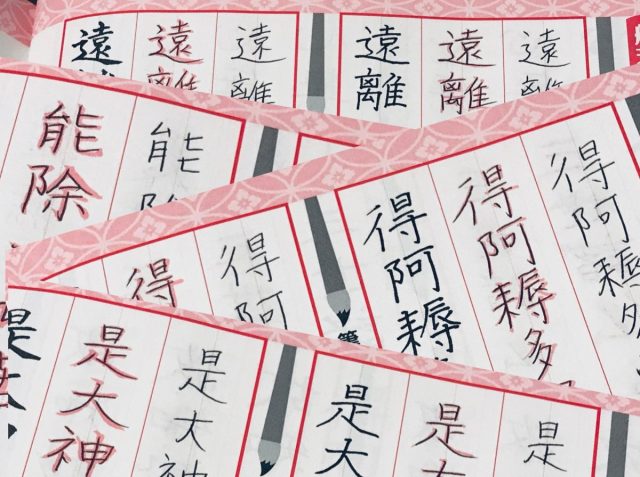 遠離
遠離
遠離
遠離
遠離
遠離
能除
能除
得阿耨多
得阿耨多
得阿耨
得阿
得
是大
是大
是
是大神
是大神
是